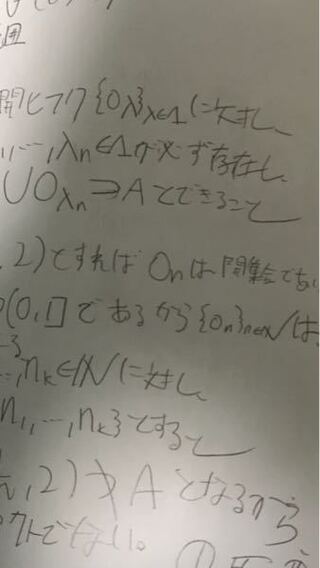 囲
開ヒフク{Oλ}λ∈Λに対し、
,…,λn∈Λが必ず存在し、
∪Oλn⊃Aとできること
,2)とすれば Onは開集合であり
(0,1]であるから{On}n∈Nは、
…,nk∈Nに対し、
n1,…,nk}とすると
,2)⊅Aとなるから
クトでない。